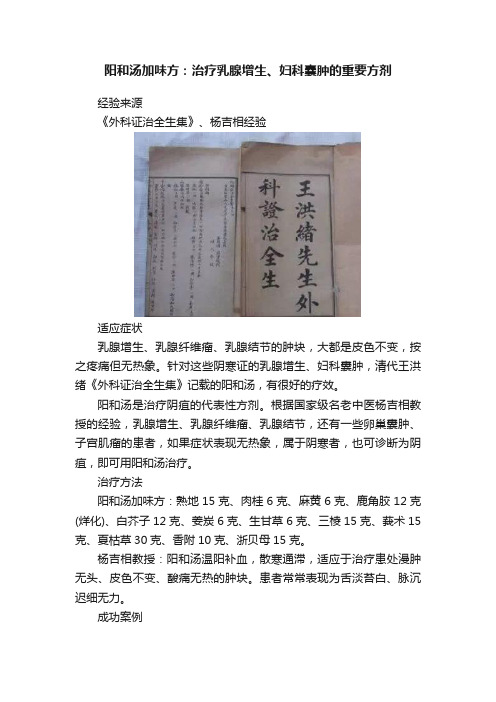 阳和汤加味方：治疗乳腺增生、妇科囊肿的重要方剂
经验来源
《外科证治全生集》、杨吉相经验
王洪緒先生外
科證治全生
适应症状
乳腺增生、乳腺纤维瘤、乳腺结节的肿块，大都是皮色不变，按
之疼痛但无热象。针对这些阴寒证的乳腺增生、妇科囊肿，清代王洪
绪《外科证治全生集》记载的阳和汤，有很好的疗效。
阳和汤是治疗阴疽的代表性方剂。根据国家级名老中医杨吉相教
授的经验，乳腺增生、乳腺纤维瘤、乳腺结节，还有一些卵巢囊肿、
子宫肌瘤的患者，如果症状表现无热象，属于阴寒者，也可诊断为阴
疽，即可用阳和汤治疗。
治疗方法
阳和汤加味方：熟地15克、肉桂6克、麻黄6克、鹿角胶12克
(烊化)、白芥子12克、姜炭6克、生甘草6克、三棱15克、莪术15
克、夏枯草30克、香附10克、浙贝母15克。
杨吉相教授：阳和汤温阳补血，散寒通滞，适应于治疗患处漫肿
无头、皮色不变、酸痛无热的肿块。患者常常表现为舌淡苔白、脉沉
迟细无力。
成功案例